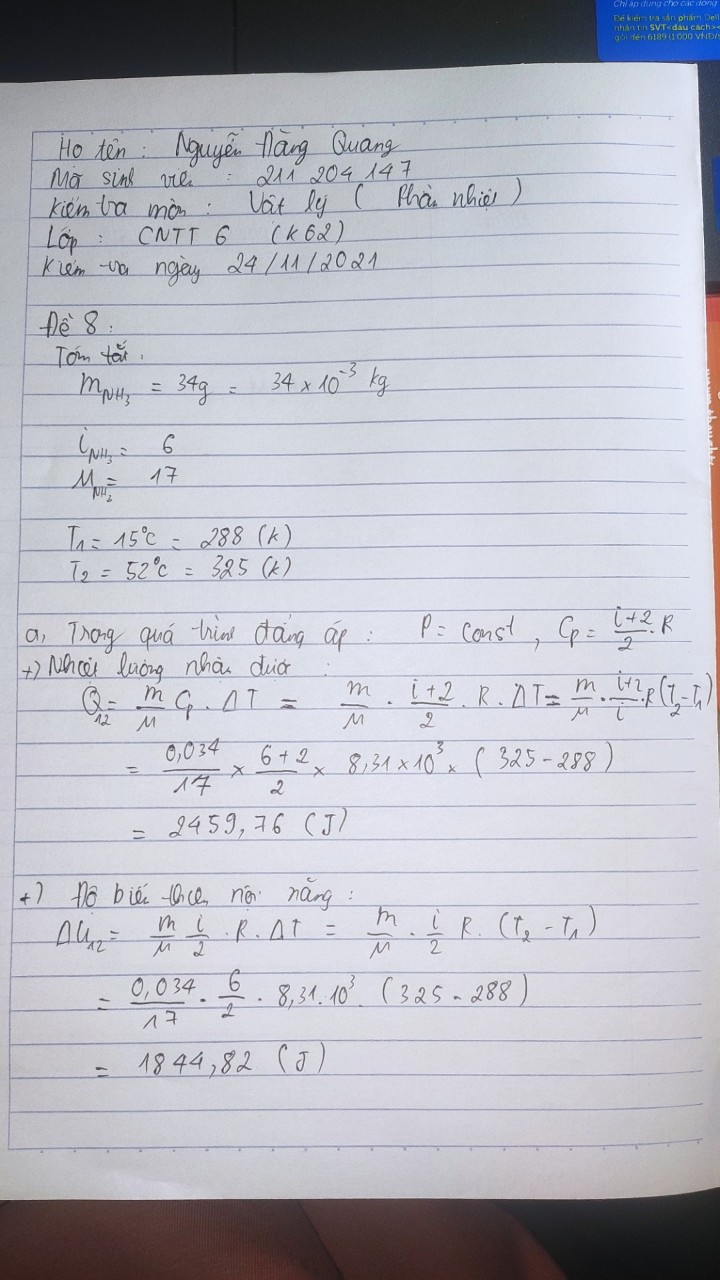 Chỉ áp dụng cho các dòng
Để kiểm tra sản phẩm Dell
nhắn tin SVT<dấu cách><
gửi đến 6189 (1.000 VNĐ/s
Họ tên : Nguyễn Đăng Quang
Mã sinh viên : 211 204 147
Kiểm tra môn : Vật lý ( Phần nhiệt )
Lớp : CNTT 6 (K62)
Kiểm tra ngày 24/11/2021
Đề 8 :
Tóm tắt :
m_NH₃ = 34g = 34 × 10⁻³ kg
i_NH₃ = 6
μ_NH₂ = 17
T₁ = 15°C = 288 (K)
T₂ = 52°C = 325 (K)
a, Trong quá trình đẳng áp : P = const , Cp = (i+2)/2 . R
+) Nhiệt lượng nhận được :
Q₁₂ = m/μ Cp . ΔT = m/μ . (i+2)/2 . R . ΔT = m/μ . (i+2)/i . R (T₂ - T₁)
= 0,034/17 × (6+2)/2 × 8,31 × 10³ × ( 325 - 288 )
= 2459,76 (J)
+) Độ biến thiên nội năng :
ΔU₁₂ = m/μ i/2 . R . ΔT = m/μ . i/2 R . (T₂ - T₁)
= 0,034/17 . 6/2 . 8,31.10³ . (325 - 288)
= 1844,82 (J)